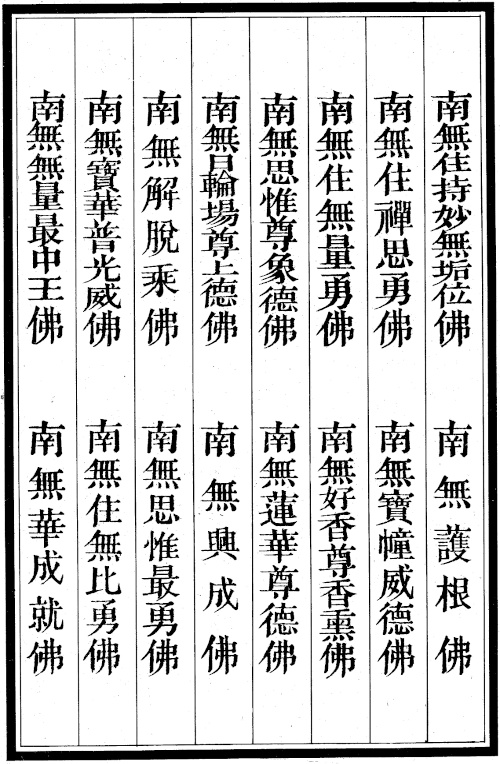 南無住持妙無垢位佛　南無護根佛
南無住禪思勇佛　南無寶幢威德佛
南無住無量勇佛　南無好香尊香熏佛
南無思惟尊象德佛　南無蓮華尊德佛
南無日輪場尊上德佛　南無興成佛
南無解脫乘佛　南無思惟最勇佛
南無寶華普光威佛　南無住無比勇佛
南無無量最中王佛　南無華成就佛